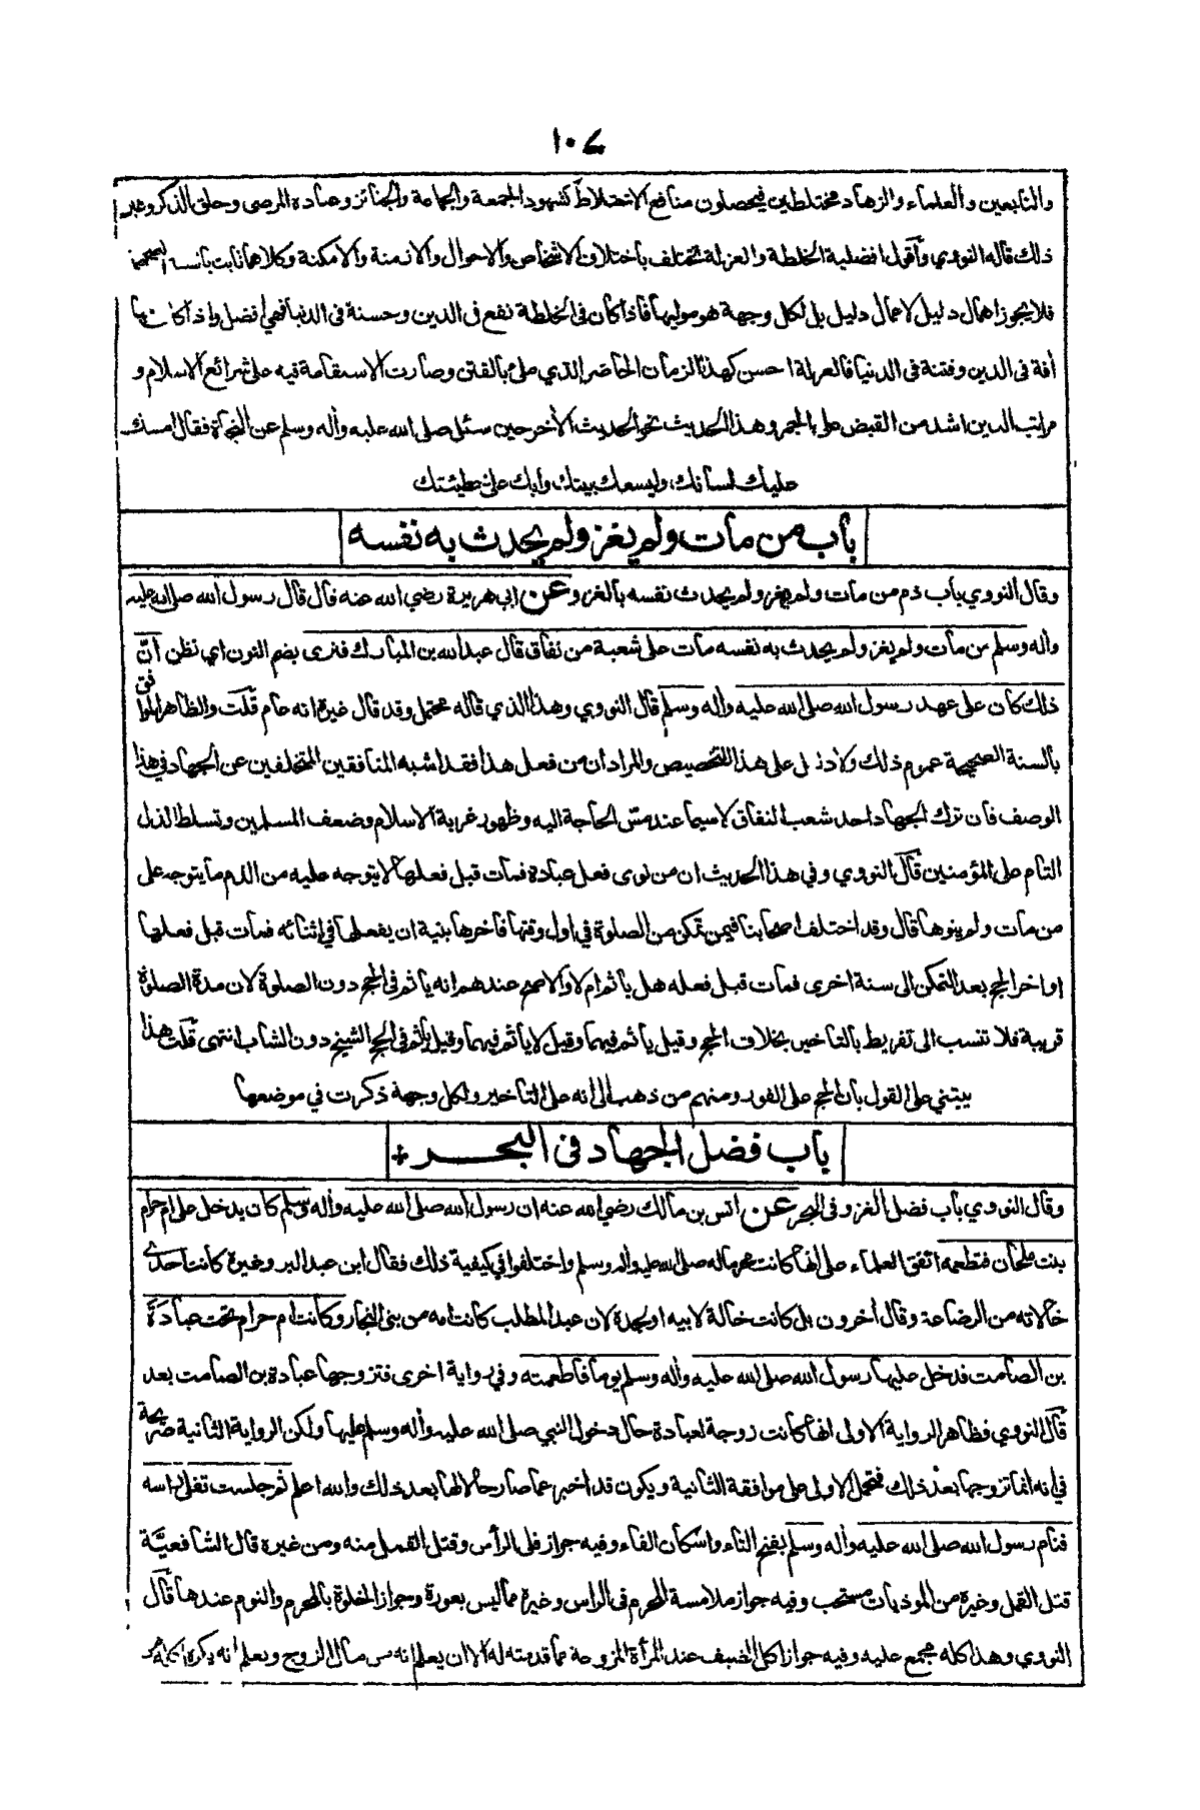 ١٠٧
والتابعين والعلماء والزهاد مختلطين فيحصلون منافع الاختلاط كشهود الجمعة والجماعة والجنائز وعيادة المرضى وحلق الذكر وغير
ذلك قاله النووي وأقول افضلية الخلطة والعزلة تختلف باختلاف الاشخاص والاحوال والازمنة والامكنة وكلاهما ثابت بالسنة الصحيحة
فلا يجوز اهمال دليل لاعمال دليل بل لكل وجهة هو موليها فاذا كان في الخلطة نفع في الدين وحسنة في الدنيا فهي افضل واذا كانت بها
أفة في الدين وفتنة في الدنيا فالعزلة احسن كهذا الزمان الحاضر الذي ملئ بالفتن وصارت الاستقامة فيه على شرائع الاسلام و
مراتب الدين اشد من القبض على الجمر وهذا الحديث نحو الحديث الأخر حين سئل صلى الله عليه وأله وسلم عن النجاة فقال امسك
عليك لسانك وليسعك بيتك وابك على خطيئتك
باب من مات ولم يغز ولم يحدث به نفسه
وقال النووي باب ذم من مات ولم يغز ولم يحدث نفسه بالغزو عن ابي هريرة رضي الله عنه قال قال رسول الله صلى الله عليه
وأله وسلم من مات ولم يغز ولم يحدث به نفسه مات على شعبة من نفاق قال عبدالله بن المبارك فنرى بضم النون اي نظن أنّ
ذلك كان على عهد رسول الله صلى الله عليه وأله وسلم قال النووي وهذا الذي قاله محتمل وقد قال غيرة انه عام قلت والظاهر الموافق
بالسنة الصحيحة عموم ذلك ولا دليل على هذا التخصيص والمراد ان من فعل هذا فقد اشبه المنافقين المتخلفين عن الجهاد في هذا
الوصف فان ترك الجهاد احد شعب النفاق لاسيما عند مسّ الحاجة اليه وظهور غربة الاسلام وضعف المسلمين وتسلط الذل
التام على المؤمنين قال النووي وفي هذا الحديث ان من نوى فعل عبادة فمات قبل فعلها لا يتوجه عليه من الذم ما يتوجه على
من مات ولم ينوها قال وقد اختلف اصحابنا فيمن تمكن من الصلوة في اول وقتها فأخرها بنية ان يفعلها في اثنائه فمات قبل فعلها
او اخر الحج بعد التمكن الى سنة اخرى فمات قبل فعله هل يأثم ام لا والاصح عندهم انه يأثم في الحج دون الصلوة لان مدة الصلوة
قريبة فلا تنسب الى تفريط بالتأخير بخلاف الحج وقيل يأثم فيهما وقيل لا يأثم فيهما وقيل يأثم في الحج الشيخ دون الشاب انتهى قلت هذا
يبتني على القول بان الحج على الفور ومنهم من ذهب الى انه على التأخير ولكل وجهة ذكرت في موضعها
باب فضل الجهاد في البحر
وقال النووي باب فضل الغزو في البحر عن انس بن مالك رضي الله عنه ان رسول الله صلى الله عليه وأله وسلم كان يدخل على ام حرام
بنت ملحان فتطعمه اتفق العلماء على انها كانت محرما له صلى الله عليه وأله وسلم واختلفوا في كيفية ذلك فقال ابن عبد البر وغيرة كانت احدى
خالاته من الرضاعة وقال أخرون بل كانت خالة لابيه او لجدة لان عبد المطلب كانت امه من بني النجار وكانت ام حرام تحت عبادة
بن الصامت فدخل عليها رسول الله صلى الله عليه وأله وسلم يوما فاطعمته وفي رواية اخرى فتزوجها عبادة بن الصامت بعد
قال النووي فظاهر الرواية الاولى انها كانت زوجة لعبادة حال دخول النبي صلى الله عليه وأله وسلم عليها ولكن الرواية الثانية صريحة
في انه انما تزوجها بعد ذلك فتحمل الاولى على موافقة الثانية ويكون قد اخبر عما صار حالا لها بعد ذلك والله اعلم ثم جلست تفلي راسه
فنام رسول الله صلى الله عليه وأله وسلم بفتح التاء واسكان الفاء وفيه جواز فلي الرأس وقتل القمل منه ومن غيرة قال الشافعيّة
قتل القمل وغيرة من الموذيات مستحب وفيه جواز ملامسة المحرم في الراس وغيرة مما ليس بعورة وجواز الخلوة بالمحرم والنوم عندها قال
النووي وهذا كله مجمع عليه وفيه جواز اكل الضيف عند المرأة المزوجة مما قدمته له الا ان يعلم انه من مال الزوج ويعلم انه يكره